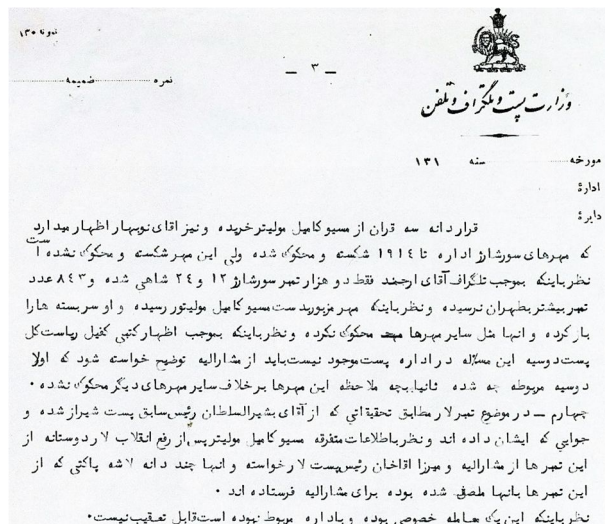 نمونه ١٣٠
— ٣ —
نمره ضمیمه
وزارت پست و تلگراف و تلفن
مورخه سنه ١٣١
ادارهٔ
دایرهٔ
قرار دانه سه قران از مسیو کامیل مولیتر خریده و نیز آقای نوبهار اظهار میدارد
که مهرهای سورشارژ اداره تا ١٩١٤ شکسته و محکوک شده ولی این مهر شکسته و محکوک نشده است
نظر باینکه بموجب تلگراف آقای ارجمند فقط دو هزار تمبر سورشارژ ١٢ و ٢٤ شاهی شده و ٨٤٣ عدد
تمبر بیشتر بطهران نرسیده و نظر باینکه مهر مزبور بدست مسیو کامیل مولیتور رسیده و او سر بسته هارا
باز کرده و آنها مثل سایر مهرها محکوک نکرده و نظر باینکه بموجب اظهار کتبی کفیل ریاست کل
پست دوسیه این مسئله در اداره پست موجود نیست باید از مشارالیه توضیح خواسته شود که اولا
دوسیه مربوطه چه شده ثانیا بچه ملاحظه این مهرها بر خلاف سایر مهرهای دیگر محکوک نشده ٠
چهارم — در موضوع تمبر لار مطابق تحقیقاتی که از آقای بشیرالسلطان رئیس سابق پست شیراز شده و
جوابی که ایشان داده اند و نظر باطلاعات متفرقه مسیو کامیل مولیتر پس از رفع انقلاب لار دوستانه از
این تمبرها از مشارالیه و میرزا آقاخان رئیس پست لار خواسته و آنها چند دانه لاشه پاکتی که از
این تمبرها بآنها ملصق شده بوده برای مشارالیه فرستاده اند ٠
نظر باینکه این یک معامله خصوصی بوده و باداره مربوط نبوده است قابل تعقیب نیست٠